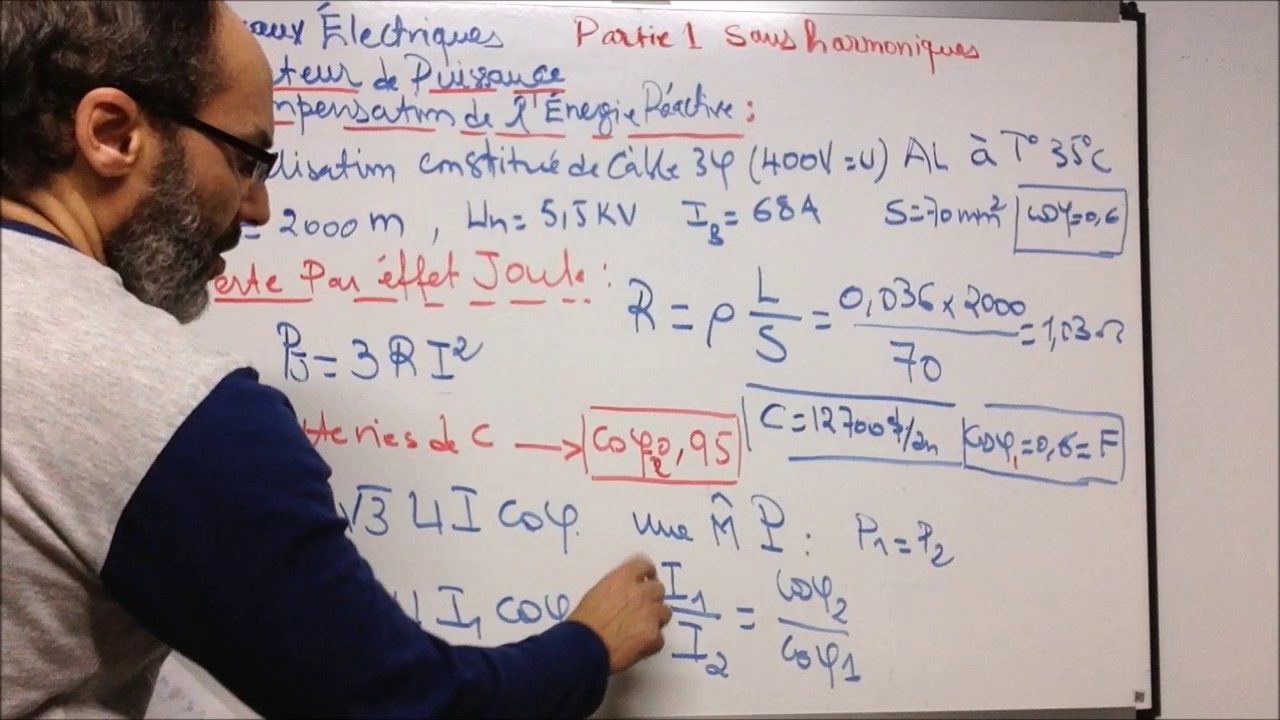 aux Électriques Partie 1 Sans harmoniques
teur de Puissance
mpensation de l'Énergie Réactive :
lisation constitué de Câble 3φ (400V=U) AL à T° 35°C
= 2000 m , Un= 5,5 KV I_B= 68A S=70mm² cosφ=0,6
erte Par éffet Joule :
R = ρ L/S = 0,036 x 2000 / 70 = 1,03 Ω
P_J = 3 R I²
tteries de C → cosφ₂=0,95 C=12700$/an cosφ₁=0,6=F
√3 U I cosφ. une M̂ P : P₁=P₂
U I₁ cosφ I₁/I₂ = cosφ₂/cosφ1